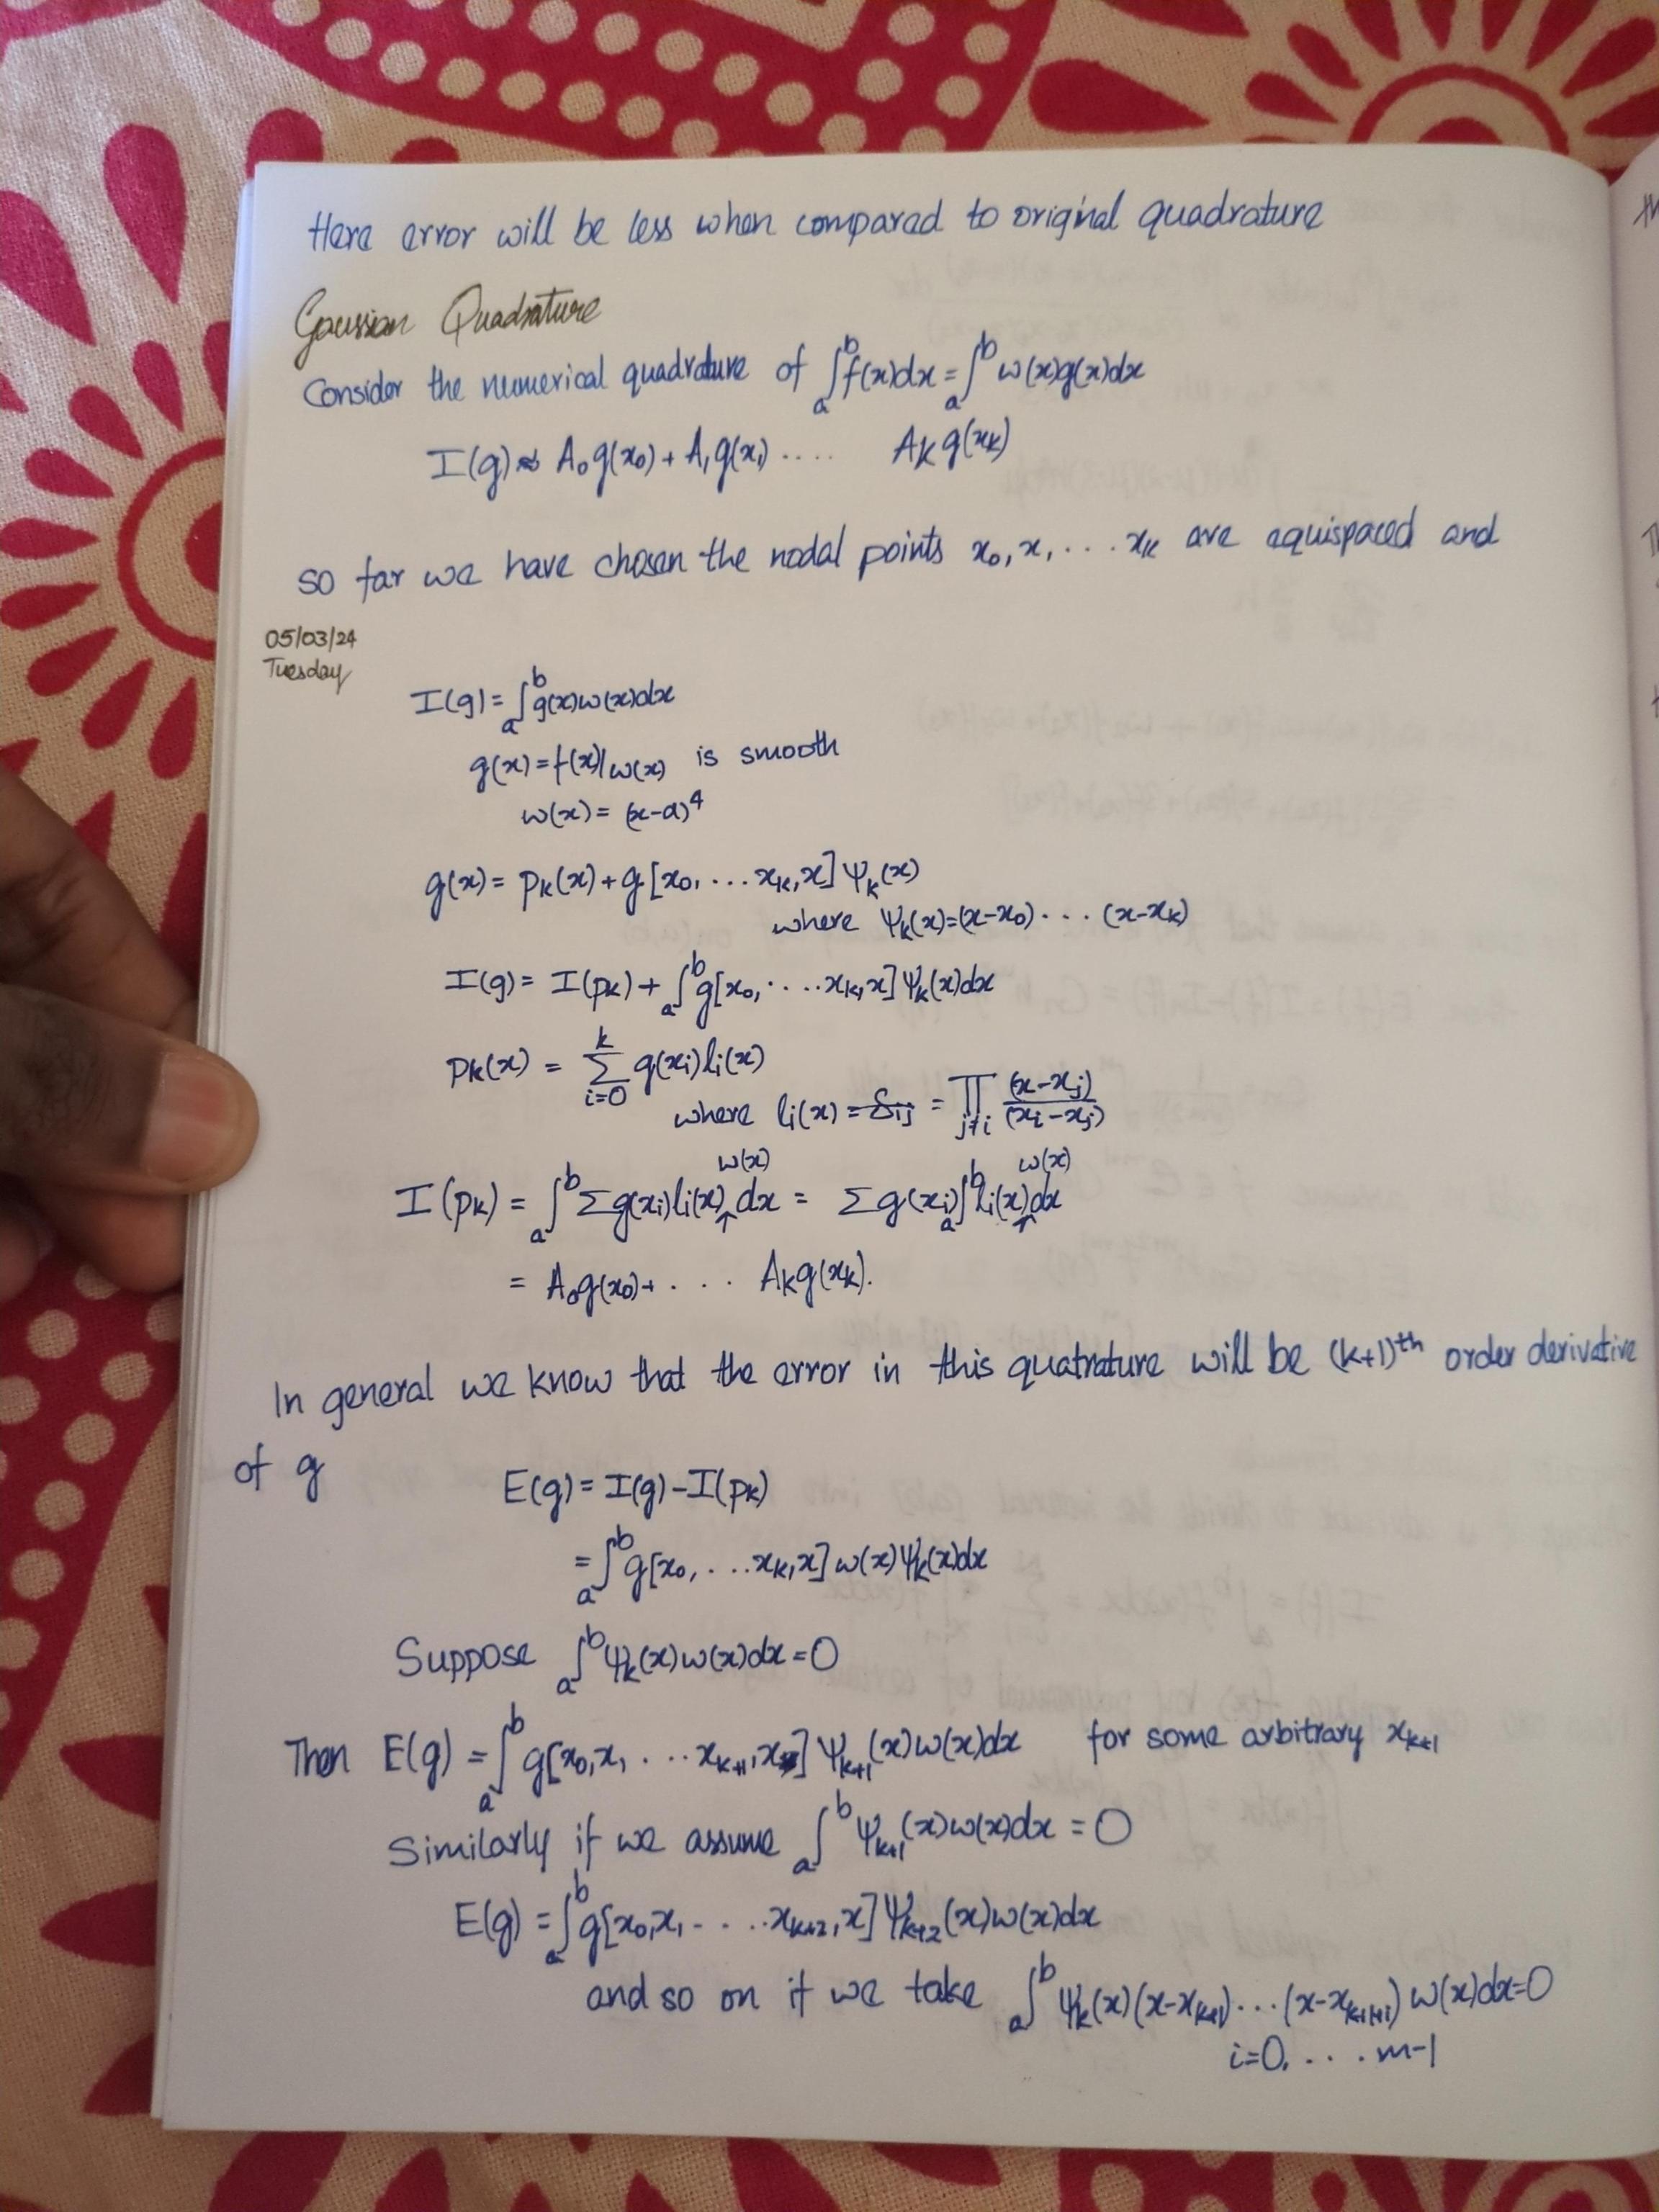 Here error will be less when compared to original quadrature
Gaussian Quadrature
Consider the numerical quadrature of ∫_a^b f(x)dx = ∫_a^b w(x)g(x)dx
I(g) ≈ A₀g(x₀) + A₁g(x₁) .... A_k g(x_k)
so far we have chosen the nodal points x₀, x₁ ... x_k are equispaced and
05/03/24
Tuesday
I(g) = ∫_a^b g(x)w(x)dx
g(x) = f(x)/w(x) is smooth
w(x) = (x-a)⁴
g(x) = p_k(x) + g[x₀, ... x_k, x] Ψ_k(x)
where Ψ_k(x) = (x-x₀) ... (x-x_k)
I(g) = I(p_k) + ∫_a^b g[x₀, ... x_k, x] Ψ_k(x)dx
p_k(x) = Σ_{i=0}^k g(x_i) l_i(x)
where l_i(x) = δ_ij = ∏_{j≠i} (x-x_j)/(x_i-x_j)
I(p_k) = ∫_a^b Σ g(x_i) l_i(x) w(x) dx = Σ g(x_i) ∫_a^b l_i(x) w(x) dx
= A₀g(x₀) + ... A_k g(x_k).
In general we know that the error in this quatrature will be (k+1)th order derivative
of g
E(g) = I(g) - I(p_k)
= ∫_a^b g[x₀, ... x_k, x] w(x) Ψ_k(x)dx
Suppose ∫_a^b Ψ_k(x) w(x)dx = 0
Then E(g) = ∫_a^b g[x₀, x₁ ... x_{k+1}, x] Ψ_{k+1}(x) w(x)dx for some arbitrary x_{k+1}
Similarly if we assume ∫_a^b Ψ_{k+1}(x) w(x)dx = 0
E(g) = ∫_a^b g[x₀, x₁ - ... x_{k+2}, x] Ψ_{k+2}(x) w(x)dx
and so on if we take ∫_a^b Ψ_k(x) (x-x_{k+1}) ... (x-x_{k+1+i}) w(x)dx = 0
i=0, ... m-1